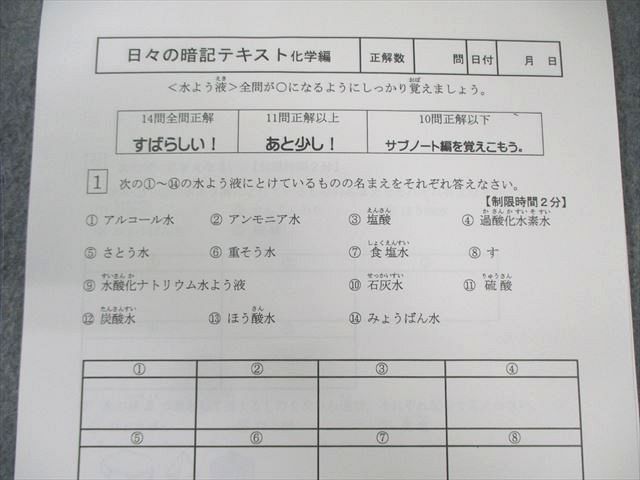 日々の暗記テキスト化学編 正解数 問 日付 月 日
<水よう液>全問が○になるようにしっかり覚えましょう。
14問全問正解 11問正解以上 10問正解以下
すばらしい! あと少し! サブノート編を覚えこもう。
1 次の①~⑭の水よう液にとけているものの名まえをそれぞれ答えなさい。
【制限時間2分】
① アルコール水 ② アンモニア水 ③ 塩酸 ④ 過酸化水素水
⑤ さとう水 ⑥ 重そう水 ⑦ 食塩水 ⑧ す
⑨ 水酸化ナトリウム水よう液 ⑩ 石灰水 ⑪ 硫酸
⑫ 炭酸水 ⑬ ほう酸水 ⑭ みょうばん水
① ② ③ ④
⑤ ⑥ ⑦ ⑧